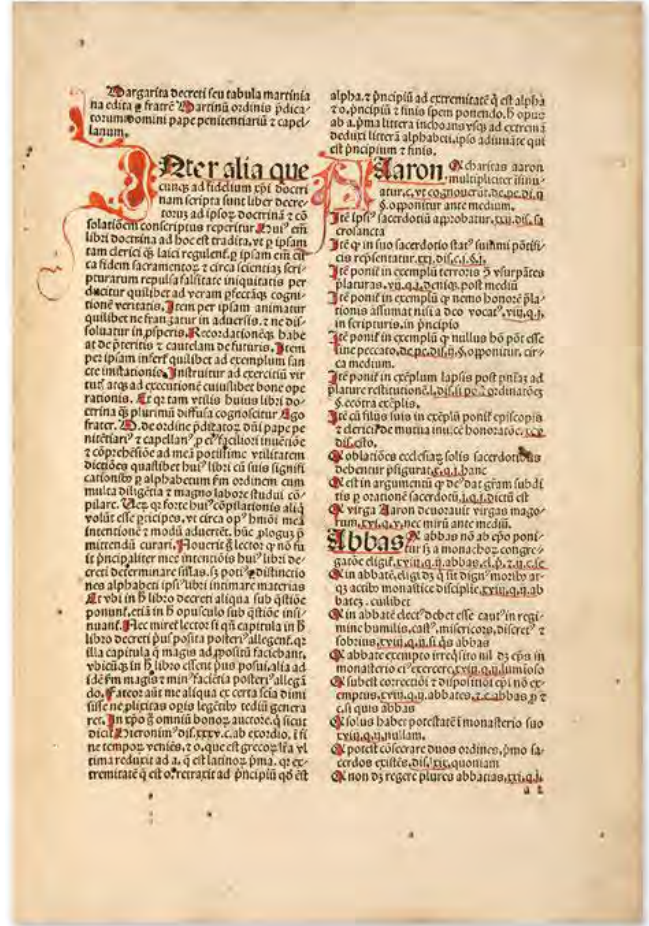 Margarita decreti seu tabula martinia
na edita ꝑ fratrē Martinū ordinis p̄dica-
torum domini pape penitentiariū ⁊ capel-
lanum.
INter alia que
cunqꝫ ad fidelium xp̄i doctri
nam scripta sunt liber decre-
torum ad ipsoꝝ doctrinā ⁊ cō
solatiōem conscriptus reperitur. Huiꝰ em̄
libri doctrina ad hoc est tradita, vt ꝑ ipsam
tam clerici qꝫ laici regulent᷑. ꝑ ipsam em̄ cir
ca fidem sacramentoꝝ ⁊ circa scientiaꝫ scri-
pturarum repulsa falsitate iniquitatis per
ducitur quilibet ad veram ꝑfectāqꝫ cogni-
tionē veritatis. Item per ipsam animatur
quilibet ne frangatur in aduersis, ⁊ ne dis-
soluatur in ꝓsperis. Recordationēqꝫ habe
at de p̄teritis ⁊ cautelam de futuris. Item
per ipsam infert᷑ quilibet ad exemplum san
cte imitationis. Instruitur ad exercitiū vir
tut᷑ atqꝫ ad executionē cuiuslibet bone ope
rationis. Et qꝛ tam vtilis huius libri do-
ctrina qꝫ plurimū diffusa cognoscitur Ego
frater. M. de ordine p̄dicatoꝝ dn̄i pape pe
nitētiariꝰ ⁊ capellanꝰ, ꝓ eiꝰ faciliori inuētiōe
⁊ cōprehēsiōe ad meā potissime vtilitatem
dictiōes quaslibet huiꝰ libri cū suis signifi
cationibꝰ ꝑ alphabetum ẜm ordinem cum
multa diligētia ⁊ magno labore studui cō-
pilare. Ueꝝ qꝛ forte huiꝰ cōpilationis aliq̄
volūt esse ꝑticipes, vt circa opꝰ hmōi meā
intentionē ⁊ modū aduertēt. hūc ꝓlogum p̄
mittendū curaui. Nouerit g̊ lector ꝙ nō fu
it p̄ncipaliter mee intentiōis huiꝰ libri de-
creti determinare sillas. sꝫ potiꝰ ꝑ distinctio
nes alphabeti ipsiꝰ libri intimare materias
Et vbi in ħ libro decreti aliqua sub q̄stiōe
ponunt᷑. etiā in ħ opusculo sub q̄stiōe insi-
nuant᷑. Nec miret᷑ lector si qn̄ capitula in ħ
libro decreti p̄us posita posteriꝰ allegent᷑. qꝛ
illa capitula q̄ magis ad ꝓpositū faciebant,
vbicūqꝫ in ħ libro essent p̄us posui, alia ad
idē ẜm magis ⁊ minꝰ faciētia posteriꝰ allegā
do. Fateor aūt me aliqua ex certa scīa dimi
sisse ne ꝓlixitas oꝑis legētibꝰ tediū genera
ret. In xp̄o g̊ omniū bonoꝝ auctore. q̄ sicut
dicit Hieronimꝰ dis. xxxv. c. ab exordio, ī fi
ne tempoꝝ veniēs, ⁊ o, que est grecoꝝ lr̄a vl
tima reduxit ad a. q̄ est latinoꝝ p̄ma. qꝛ ex-
tremitatē q̄ est o. retraxit ad p̄ncipiū qd̄ est
alpha. ⁊ p̄ncipiū ad extremitatē q̄ est alpha
⁊ o, p̄ncipiū ⁊ finis spem ponendo. ħ opus
ab a. p̄ma littera inchoans vsqꝫ ad extremā
deduxi litterā alphabeti. ipso adiuuāte qui
est p̄ncipium ⁊ finis.
Aaron. Q charitas aaron
multipliciter insinu-
atur. c. vt cognouerūt. de. pe. di. ij
§. opponitur ante medium.
Itē ipsiꝰ sacerdotiū approbatur. xxij. dis. sa
crosancta
Itē ꝙ in suo sacerdotio statꝰ summi pōtifi-
cis rep̄sentatur. xxj. dis. c. j. §. j.
Itē ponit᷑ in exemplū terroris ꝯ vsurpātes
p̄laturas. vij. q. j. deniqꝫ. post mediū
Itē ponit᷑ in exemplū ꝙ nemo honorē p̄la-
tionis assumat nisi a deo vocatꝰ. viij. q. j.
in scripturis. in p̄ncipio
Itē ponit᷑ in exemplū ꝙ nullus hō pōt esse
sine peccato. de. pe. dis. ij. §. opponitur, cir-
ca medium.
Itē ponit᷑ in exēplum lapsus post pn̄iaꝫ ad
§. econtra exēplis.
Itē cū filijs suis in exēplū ponit᷑ episcopis
Q oblatiōes ecclesiaꝝ solis sacerdotibus
Q est in argumentū ꝙ deꝰ dat gr̄am subdi
tis ꝑ orationē sacerdotū. j. q. j. dictū est
Q virga Aaron deuorauit virgas mago-
rum. xvj. q. v. nec mirū ante mediū.
Abbas Q abbas nō ab ep̄o poni-
tur sꝫ a monachoꝝ congre-
Q in abbatē. eligi dꝫ q̄ sit dignꝰ moribꝰ at-
qꝫ actibꝰ monastice discipline. xviij. q. ij. ab
bateꝫ. cuilibet
Q in abbatē electꝰ debet esse cautꝰ in regi-
mine humilis, castꝰ, misericors, discretꝰ ⁊
sobrius. xviij. q. ij. si q̄s abbas
Q abbate exempto irreq̄sito nil dꝫ ep̄s in
monasterio eiꝰ exercere. xviij. q. ij. luminoso
Q subest correctiōi ⁊ dispositiōi ep̄i nō ex-
emptus. xviij. q. ij. abbates. ⁊. c. abbas p̄ ⁊
c. si quis abbas
Q solus habet potestatē ī monasterio suo
xviij. q. ij. nullam.
Q potest cōsecrare duos ordines. p̄mo sa-
cerdos existēs. dis. lxix. quoniam
Q non dꝫ regere plures abbatias. xxj. q. j.
a 2